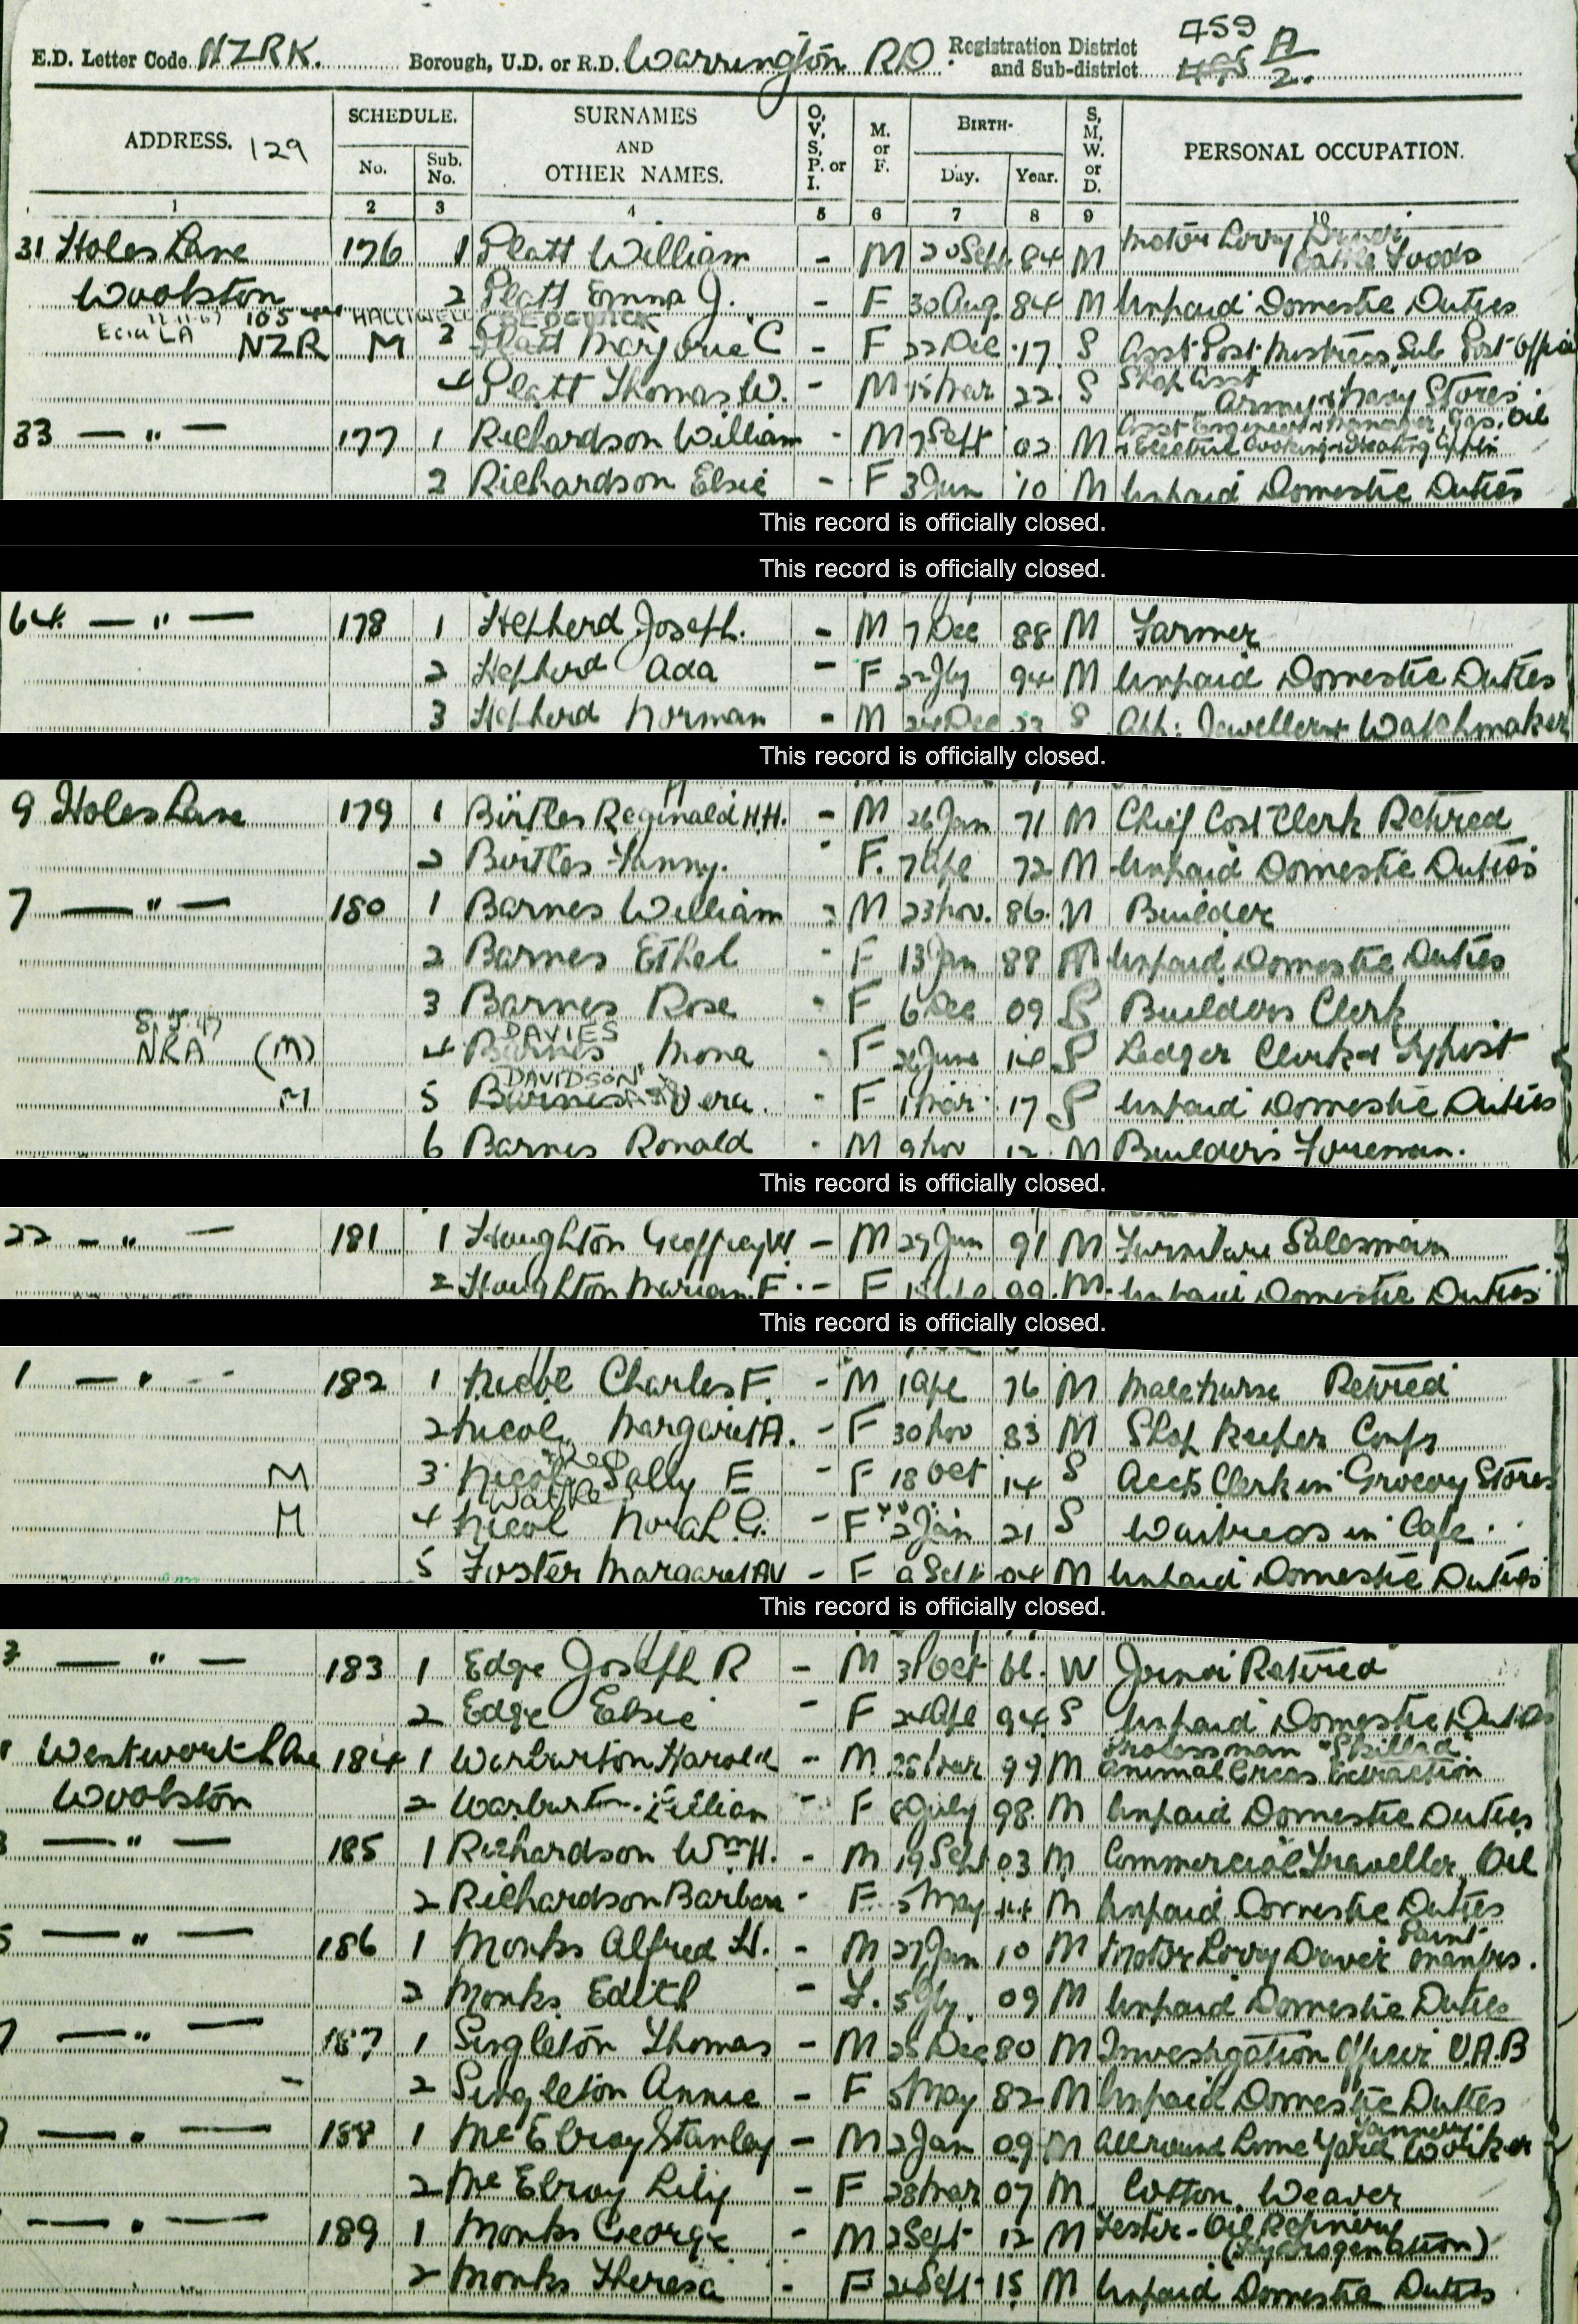 E.D. Letter Code NZRK. Borough, U.D. or R.D. Warrington RD. Registration District and Sub-district 459 A/2.
ADDRESS. 129 SCHEDULE. No. Sub. No. SURNAMES AND OTHER NAMES. O, V, S, P. or I. M. or F. BIRTH- Day. Year. S, M, W. or D. PERSONAL OCCUPATION.
1 2 3 4 5 6 7 8 9 10
31 Holes Lane 176 1 Platt William - M 20 Sept 84 M Motor Lorry Driver Cattle Foods
Woolston 2 Platt Emma J. - F 30 Aug 84 M Unpaid Domestic Duties
HALLIWELL
NZR M 3 Platt Marjorie C - F 22 Dec 17 S Asst Post Mistress Sub Post Office
4 Platt Thomas W. - M 15 Mar 22 S Shop Asst Army & Navy Stores
33 — " — 177 1 Richardson William - M 7 Sept 02 M Asst Engineer & Manager, Gas, Oil & Electric Cooking & Heating
2 Richardson Elsie - F 3 Jun 10 M Unpaid Domestic Duties
This record is officially closed.
This record is officially closed.
64 — " — 178 1 Hepherd Joseph. - M 7 Dec 88 M Farmer
2 Hepherd Ada - F 22 Jly 94 M Unpaid Domestic Duties
3 Hepherd Norman - M 24 Dec 23 S App: Jeweller & Watchmaker
This record is officially closed.
9 Holes Lane 179 1 Birtles Reginald H.H. - M 26 Jan 71 M Chief Cost Clerk Retired
2 Birtles Fanny. - F. 7 Ape 72 M Unpaid Domestic Duties
7 — " — 180 1 Barnes William - M 23 Nov. 86 M Builder
2 Barnes Ethel - F 13 Jan 88 M Unpaid Domestic Duties
3 Barnes Rose - F 6 Dec 09 S Builders Clerk
DAVIES
NRA (M) 4 Barnes Mona - F 26 June 14 S Ledger Clerk & Typist
DAVIDSON
M 5 Barnes Vera. - F 1 Mar 17 S Unpaid Domestic Duties
6 Barnes Ronald - M 9 Nov 12 M Builder's Foreman.
This record is officially closed.
22 — " — 181 1 Houghton Geoffrey W - M 29 Jun 91 M Furniture Salesman
2 Houghton Marian F. - F 99 M Unpaid Domestic Duties
This record is officially closed.
1 — " — 182 1 Nicol Charles F. - M 1 Ape 76 M Male Nurse Retired
2 Nicol Margaret A. - F 30 Nov 83 M Shop Keeper Confs
M 3 Nicol Sally E - F 18 Oct 14 S Accts Clerk in Grocery Stores
M 4 Nicol Norah G. - F 2 Jan 21 S Waitress in Cafe.
5 Foster Margaret AV - F 9 Sept 04 M Unpaid Domestic Duties
This record is officially closed.
3 — " — 183 1 Edge Joseph R - M 31 Oct 66. W Joiner Retired
2 Edge Elsie - F 24 Ape 94 S Unpaid Domestic Duties
Wentworth Ave 184 1 Warburton Harold - M 26 Mar 99 M Processman "Skilled" Animal Grease Extraction
Woolston 2 Warburton Lillian - F 8 July 98 M Unpaid Domestic Duties
— " — 185 1 Richardson Wm H. - M 19 Sept 03 M Commercial Traveller Oil
2 Richardson Barbara - F 5 May 14 M Unpaid Domestic Duties
5 — " — 186 1 Monks Alfred H. - M 27 Jan 10 M Motor Lorry Driver Paint Manfrs.
2 Monks Edith - F. 5 Jly 09 M Unpaid Domestic Duties
7 — " — 187 1 Singleton Thomas - M 25 Dec 80 M Investigation Officer U.A.B
2 Singleton Annie - F 5 May 82 M Unpaid Domestic Duties
9 — " — 188 1 McElroy Stanley - M 2 Jan 09 M Allround Lime Yard Worker Tannery
2 McElroy Lily - F 28 Mar 07 M Cotton Weaver
— " — 189 1 Monks George - M 2 Sept 12 M Tester - Oil Refinery (Hydrogenation)
2 Monks Theresa - F 26 Sept 15 M Unpaid Domestic Duties